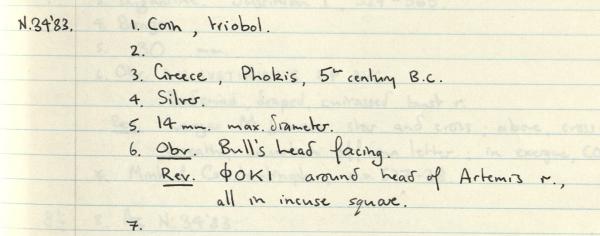 N.34'83. 1. Coin, triobol.
2.
3. Greece, Phokis, 5th century B.C.
4. Silver.
5. 14 mm. max. diameter.
6. Obv. Bull's head facing.
Rev. ΦOKI around head of Artemis r.,
all in incuse square.
7.